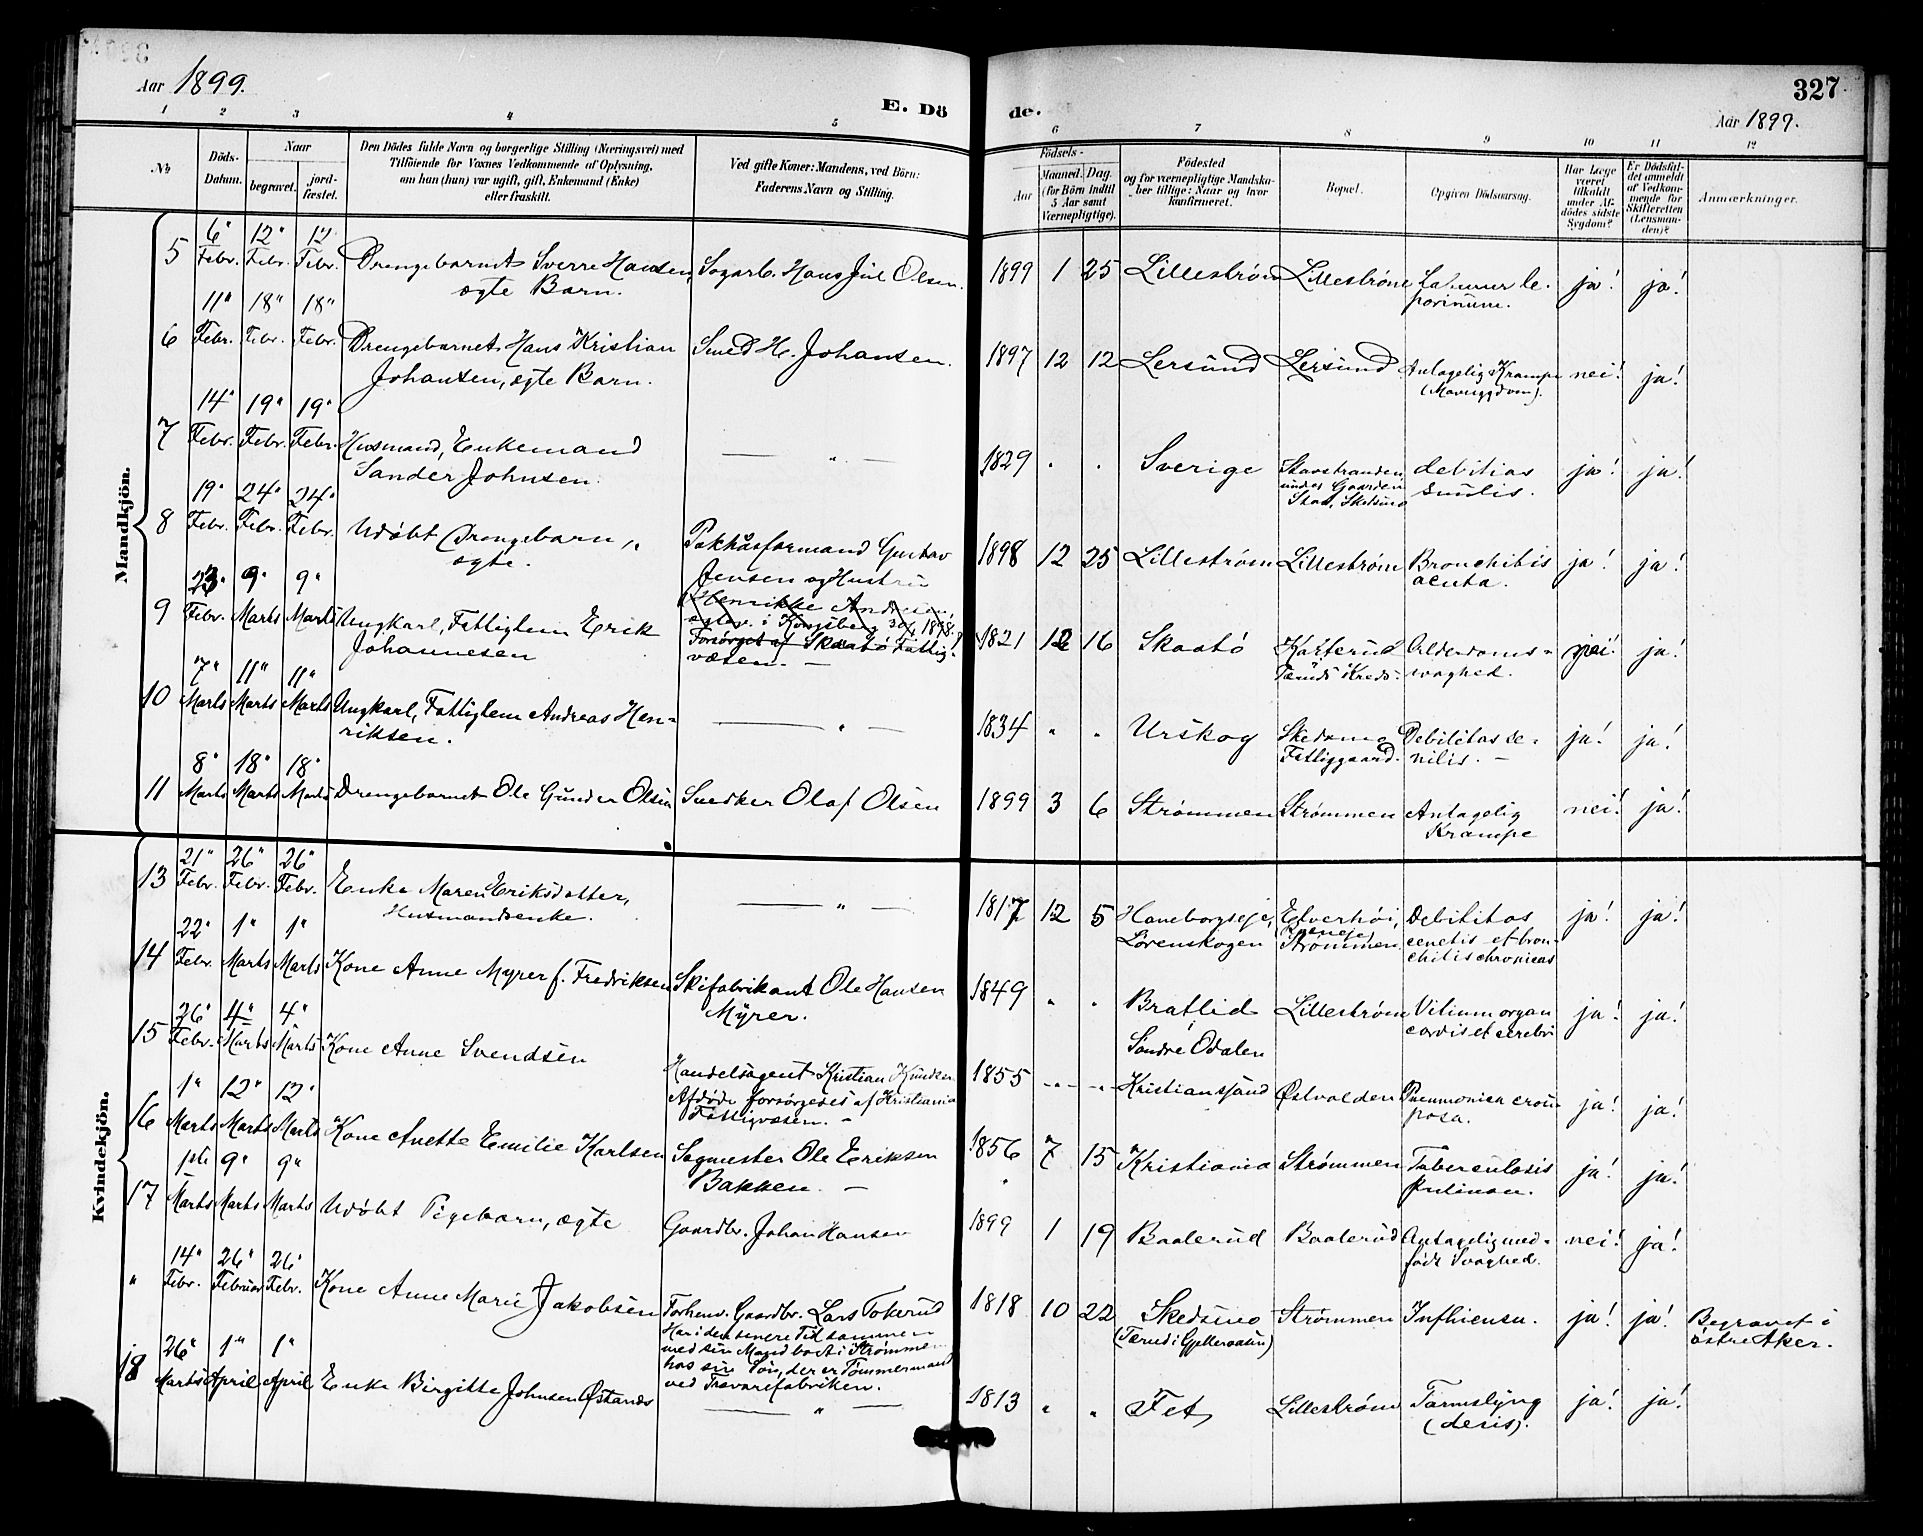 Aar 1899.
E. Dö
de.
327
Aar 1899.
1 2 3 4 5 6 7 8 9 10 11 12
No
Döds-
Datum.
Naar
begravet.
jord-
fæstet.
Den Dödes fulde Navn og borgerlige Stilling (Næringsvei) med
Tilföiende for Voxnes Vedkommende af Oplysning,
om han (hun) var ugift, gift, Enkemand (Enke)
eller fraskilt.
Ved gifte Koner: Mandens, ved Börn:
Faderens Navn og Stilling.
Födsels-
Aar
Maaned. Dag.
(for Börn indtil
5 Aar samt
Værnepligtige).
Födested
og for værnepligtige Mandska-
ber tillige: Naar og hvor
konfirmeret.
Bopæl.
Opgiven Dödsaarsag.
Har Læge
været
tilkaldt
under Af-
dödes sidste
Sygdom?
Er Dödsfal-
det anmeldt
af Vedkom-
mende for
Skifteretten
(Lensman-
den)?
Anmærkninger.
Mandkjön.
5
6" Febr.
12" Febr.
12 Febr.
Drengebarnet Sverre Hansen,
ægte Barn.
Sagarb. Hans Jul Olsen.
1899 1 25
Lillestrøm
Lillestrøm
Labium le-
porinum.
ja!
ja!
6
11" Febr.
18" Febr.
18" Febr.
Drengebarnet Hans Kristian
Johansen, ægte Barn.
Smed H. Johansen.
1897 12 12
Lersund
Lersund
Antagelig Krampe
nei!
ja!
7
14" Febr.
19" Febr.
19" Febr.
Husmand, Enkemand
Sander Johnsen.
— " —
1829 " "
Sverige
under Gaarden
debilitas
senilis.
ja!
ja!
8
19" Febr.
24" Febr.
24" Febr.
Udøbt Drengebarn,
ægte.
Pakhusformand Gustav
Jensen og Hustru
Henrikke Andresen,
1898 12 25
Lillestrøm
Lillestrøm
Bronchitis
acuta.
ja!
ja!
9
23" Febr.
9" Marts
9" Marts
Ungkarl, Fattiglem Erik
Johannesen
Forsørget af Skaatø Fattig-
væsen. —
1821 12 16
Skaatø
Alderdoms-
svaghed.
nei!
ja!
10
7" Marts
11" Marts
11" Marts
Ungkarl, Fattiglem Andreas Hen-
riksen.
— " —
1834 " "
Urskog
Skedsmo
Fattiggaard.
Debilitas se-
nilis. —
ja!
ja!
11
8" Marts
18" Marts
18" Marts
Drengebarnet Ole Gunder Olsen
Snedker Olaf Olsen
1899 3 6
Strømmen
Strømmen
Antagelig
Krampe
nei!
ja!
Kvindekjön.
13
21" Febr.
26" Febr.
26" Febr.
Enke Maren Eriksdatter,
Husmandsenke.
— " —
1817 12 5
Haneborgseje,
Lørenskogen
Strømmen
Debilitas
senelis et bron-
chitis chronicas
ja!
ja!
14
22" Febr.
1" Marts
1" Marts
Kone Anne Myrer f. Fredriksen
Skifabrikant Ole Hansen
Myrer.
1849 " "
Bratlid
Søndre Odalen
Lillestrøm
Vitium organ
cordis et cerebri
ja!
ja!
15
26" Febr.
4" Marts
4" Marts
Kone Anne Svendsen
Handelsagent Kristian Knudsen
Afdøde forsørgedes af Kristiania
Fattigvæsen. —
1855 — —
Kristianssund
Østvolden
Pneumonica crou-
posa.
ja!
ja!
16
1" Marts
12" Marts
12" Marts
Kone Anette Emilie Karlsen
Sagmester Ole Eriksen
Bakken. —
1856 7 15
Kristiania
Strømmen
Tuberculosis
Pulmon.
ja!
ja!
17
1ste Marts
9" Marts
9" Marts
Udøbt Pigebarn, ægte
Gaardbr. Johan Hansen
1899 1 19
Baalerud
Baalerud
Antagelig med-
født Svaghed.
nei!
ja!
"
14" Febr.
26" Februar
26" Febr.
Kone Anne Marie Jakobsen
Forhenv. Gaardbr. Lars Tokerud
Har i den senere Tid sammen
med sin Mand boet i Strømmen
hos sin Søn, der er Tømmermand
ved Trævarefabriken.
1818 10 22
Skedsmo
Strømmen
Influensa.
ja!
ja!
Begravet i
østre Aker.
18
26" Marts
1" April
1" April
Enke Birgitte Johnsen Østands
— " —
1813 " "
Fet
Lillestrøm
Tarmslyng
ja!
ja!